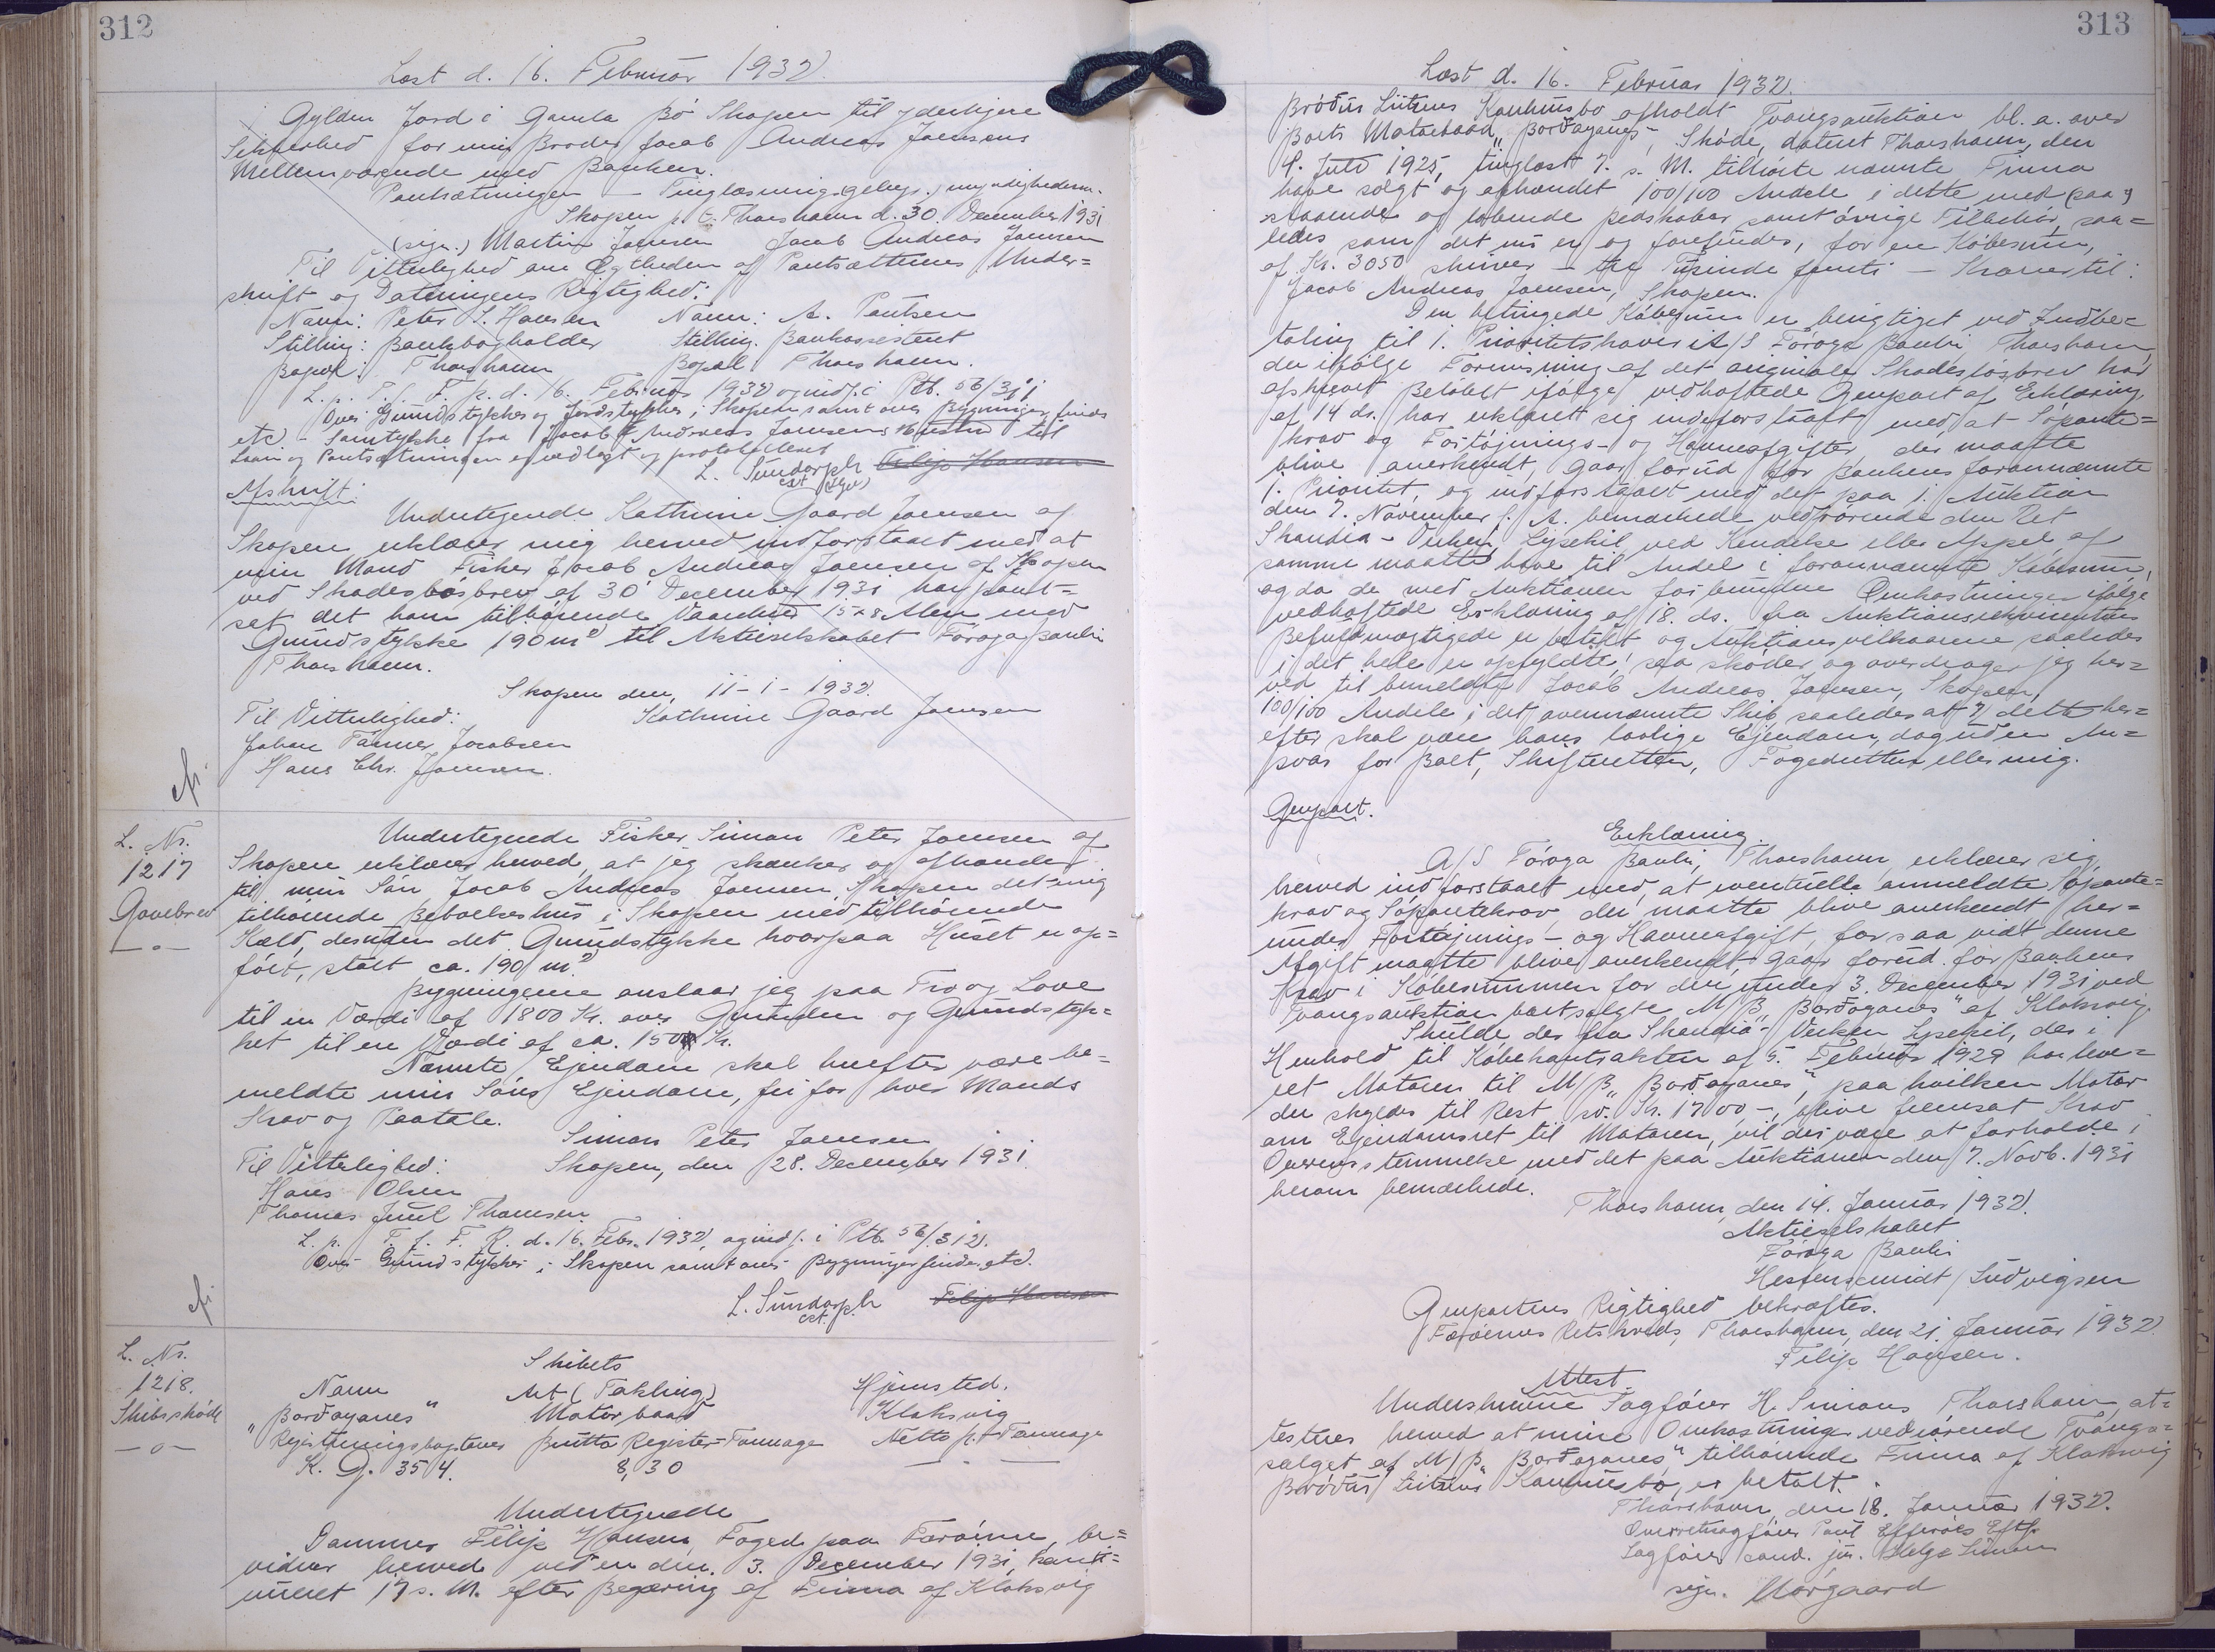 312
Læst d. 16. Februar 1932.
Gylden Jord i Gamla Bø Skopen til yderligere
Sikkerhed for min Broder Jacob Andreas Joensens
Mellemværende med Banken.
Pantsætningen – Tinglæsningsgebyr.
Skopen p. t. Thorshavn d. 30. December 1931
(sign.) Martin Joensen Jacob Andreas Joensen
Til Vitterlighed om Ægtheden af Pantsætternes Under=
skrift og Dateringens Rigtighed:
Navn: Peter S. Hansen Navn: A. Poulsen
Stilling: Bankbogholder Stilling: Bankassistent
Bopæl: Thorshavn Bopæl Thorshavn.
L. p. T. f. F. R. d. 16. Februar 1932 og indf. i Ptb. 56/311
Over Grundstykker og Jordstykker i Skopen samt over Bygninger findes
etc. – Samtykke fra Jacob Andreas Joensens Hustru til
Laan og Pantsætningen er vedlagt og protokolleret
L. Sundorph Filip Hansen
cst.
Afskrift.
Undertegnede Kathrine Gaard Joensen af
Skopen erklærer mig herved indforstaaet med at
min Mand Fisker Jacob Andreas Joensen af Skopen
ved Skadesløsbrev af 30 December 1931 har pant=
sat det ham tilhørende Vaaningshus 15 x 8 Alen med
Grundstykke 190 m² til Aktieselskabet Føroya Banki
Thorshavn.
Skopen den, 11 – 1 – 1932.
Til Vitterlighed: Kathrine Gaard Joensen
Johan Jacobsen
Hans Chr. Joensen.
L. Nr.
1217
Gavebrev
— o —
Undertegnede Fisker Simon Peter Joensen af
Skopen erklærer herved, at jeg skænker og afhænder
til min Søn Jacob Andreas Joensen Skopen det mig
tilhørende Beboelseshus i Skopen med tilhørende
Kæld, desuden det Grundstykke hvorpaa Huset er op=
ført, stort ca. 190 m²
Bygningerne anslaar jeg paa Tro og Love
til en Værdi af 1800 Kr. over Grunden og Grundstyk=
ket til en Værdi af ca. 150 Kr.
Nævnte Ejendom skal herefter være be=
meldte min Søns Ejendom, fri for hver Mands
Krav og Paatale.
Simon Peter Joensen
Til Vitterlighed: Skopen, den 28. December 1931.
Hans Olsen
Thomas Juul Thomsen
L. p. T. f. F. R. d. 16. Febr. 1932, og indf. i Ptb. 56/312.
Over Grundstykker i Skopen samt over Bygninger findes etc.
L. Sundorph Filip Hansen
cst.
L. Nr.
1218.
Skibsskøde
— o —
Skibets
Navn Art (Takling) Hjemsted.
"Borðoyanes" Motorbaad Klaksvig
Registreringsbogstaver Brutto Register-Tonnage Netto Tonnage
K. G. 354. 8,30 — —
Undertegnede
Dommer Filip Hansen, Foged paa Færøerne, be=
vidner herved ved en den 3. December 1931, konti=
nueret 17 s. M. efter Begæring af Firma af Klaksvig
313
Læst d. 16. Februar 1932.
Brøður Lützens Konkursbo afholdt Tvangsauktion bl. a. over
Boets Motorbaad "Borðoyanes", Skøde, dateret Thorshavn, den
4. Juli 1925, tinglæst 7. s. M. tilhørte nævnte Firma
have solgt og afhændet 100/100 Andele i dette med paa=
staaende og løbende Redskaber samt øvrige Tilbehør, saa=
ledes som det nu er og forefindes, for en Købesum,
af Kr. 3050 skriver – tre Tusinde femti – Kroner til:
Jacob Andreas Joensen, Skopen.
Den betingede Købesum er berigtiget ved Indbe=
taling til 1. Prioritetshaver A/S Føroya Banki Thorshavn,
der ifølge Forevisning af det originale Skadesløsbrev har
afskrevet Beløbet ifølge vedhæftede Genpart af Erklæring
af 14 ds. har erklæret sig indeforstaaet med at Søpante=
krav og Fortøjnings- og Havneafgifter, der maatte
blive anerkendt, gaar forud for Bankens forannævnte
1. Prioritet, og indforstaaet med det paa 1. Auktion
den 7. November f. A. bemærkede vedrørende den Ret
Skandia-Verken, Lysekil ved Kendelse eller Appel af
samme maatte have til Andel i forannævnte Købesum,
og da de med Auktionen forbundne Omkostninger ifølge
vedhæftede Erklæring af 18. ds. fra Auktionsrekvirentens
Befuldmægtigede er betalt og Auktionsvilkaarene saaledes
i det hele er opfyldte, saa skøder og overdrager jeg her=
ved til bemeldte Jacob Andreas Joensen, Skopen,
100/100 Andele i det ovennævnte Skib, saaledes at dette her=
efter skal være hans lovlige Ejendom, dog uden An=
svar for Boet, Skifteretten, Fogedretten eller mig.
Genpart.
Erklæring.
A/S Føroya Banki, Thorshavn, erklærer sig
herved indforstaaet med, at eventuelle anmeldte Søpante=
krav og Søpantekrav der maatte blive anerkendt, her=
under Fortøjnings- og Havneafgift, forsaavidt denne
Afgift maatte blive anerkendt, gaar forud for Bankens
Krav i Købesummen for den under 3. December 1931 ved
Tvangsauktion bortsolgte M/B "Borðoyanes" af Klaksvig.
Skulde der fra Skandia-Verken Lysekil, der i
Henhold til Købekontrakten af 5. Februar 1929 har leve=
ret Motoren til M/B "Borðoyanes", paa hvilken Motor
der skyldes til Rest sv. Kr. 1700,–, blive fremsat Krav
om Ejendomsret til Motoren, vil der være at forholde i
Overensstemmelse med det paa Auktionen den 7. Novb. 1931
herom bemærkede.
Thorshavn, den 14. Januar 1932.
Aktieselskabet
Føroya Banki
Ludvigsen
Genpartens Rigtighed bekræftes.
Færøernes Retskreds, Thorshavn, den 21. Januar 1932.
Filip Hansen.
Attest
Underskrevne Sagfører H. Simons Thorshavn, at=
testerer herved at mine Omkostninger vedrørende Tvangs=
salget af M/B "Borðoyanes" tilhørende Firma af Klaksvig
Brøður Lützens Konkursbo, er betalt.
Thorshavn, den 18. Januar 1932.
Overretssagfører Poul Effersøes Eftf.
Sagfører cand. jur. Helge Simon
sign. Norgaard